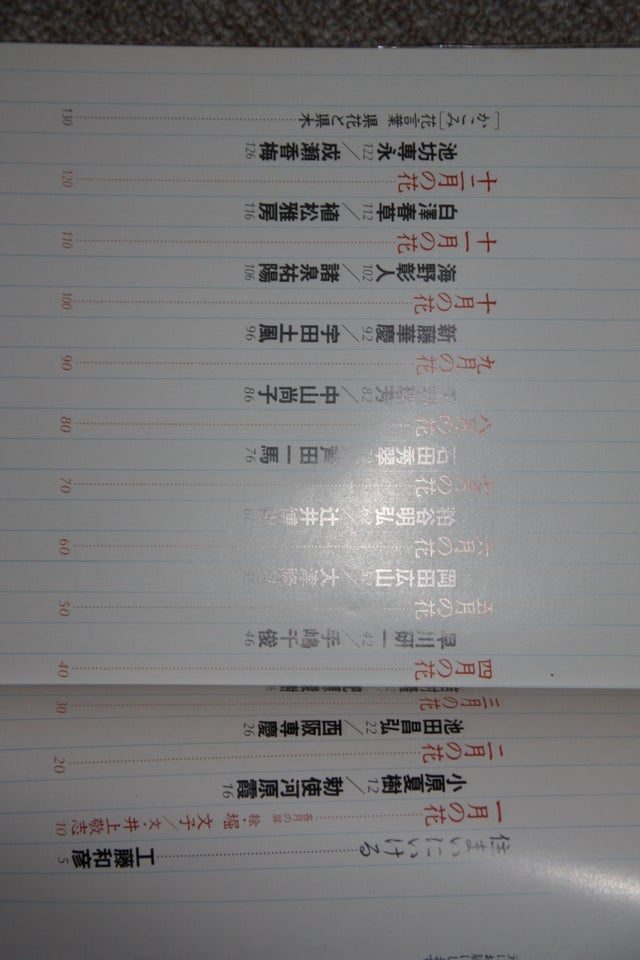 住まいにいける 工藤和彦 5
一月の花 各月の扉 絵・堀 文子/文・井上敬志 10
小原夏樹 12/勅使河原霞 16
二月の花 20
池田昌弘 22/西阪専慶 26
三月の花 30
四月の花 40
早川研一 42/手嶋千俊 46
五月の花 50
岡田広山
六月の花 60
粕谷明弘 62/辻井
七月の花 70
石田秀翠/田一馬 76
八月の花 80
82/中山尚子 86
九月の花 90
新藤華慶 92/宇田土風 96
十月の花 100
海野彰人 102/諸泉祐陽 106
十一月の花 110
白澤春草 112/植松雅房 116
十二月の花 120
池坊専永 122/成瀬香梅 126
［かこみ］花言葉 県花と県木 130